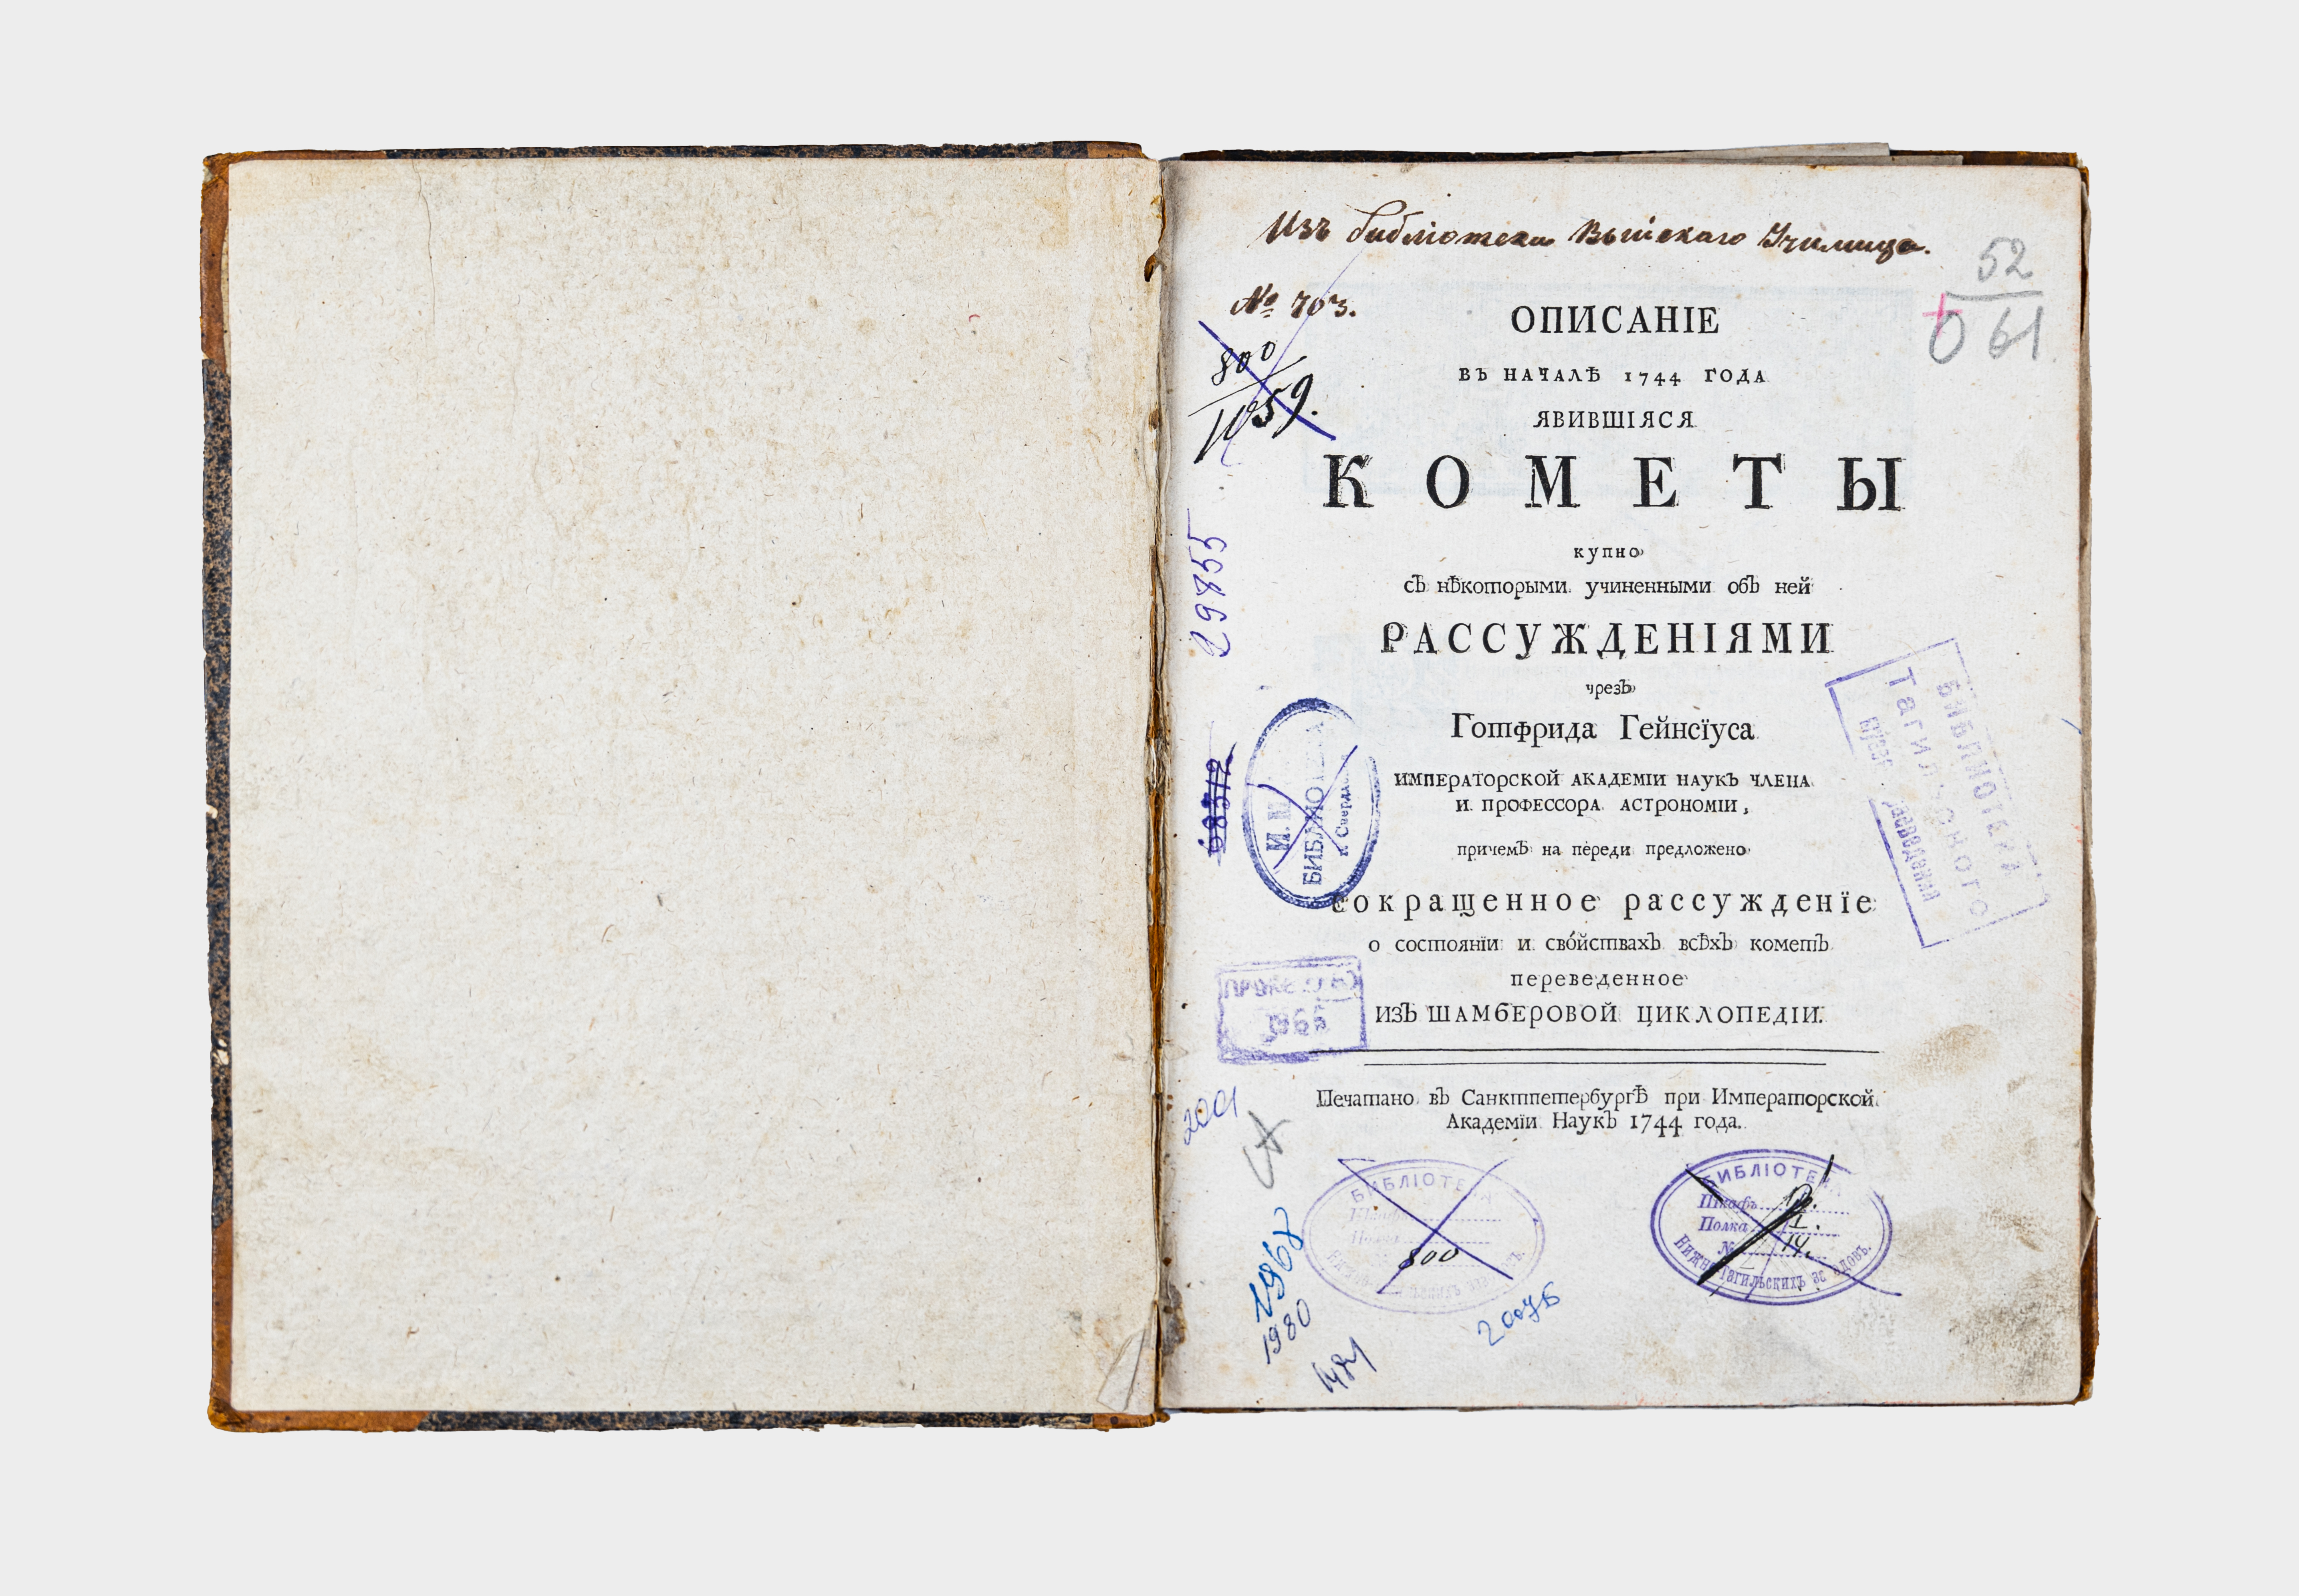 Изъ библіотеки Выйскаго Училища.
52
О 61
№ 703.
800
1059.
ОПИСАНІЕ
ВЪ НАЧАЛѢ 1744 ГОДА
ЯВИВШІЯСЯ
КОМЕТЫ
купно
съ нѣкоторыми учиненными объ ней
РАССУЖДЕНІЯМИ
чрезъ
Готфрида Гейнсїуса
ИМПЕРАТОРСКОЙ АКАДЕМІИ НАУКЪ ЧЛЕНА
И ПРОФЕССОРА АСТРОНОМІИ,
причемъ на переди предложено
сокращенное рассужденїе
о состоянїи и сво́йствахъ всѣхъ кометъ
переведенное
ИЗЪ ШАМБЕРОВОЙ ЦИКЛОПЕДІИ.
Печатано въ Санктпетербургѣ при Императорской
Академїи Наукъ 1744 года.
БИБЛИОТЕКА
Тагильского
БИБЛИОТЕКА
БИБЛІОТЕКА
800
БИБЛІОТЕКА
Шкафъ
Полка I.
№ 14.
Нижне Тагильскихъ
1967
1980